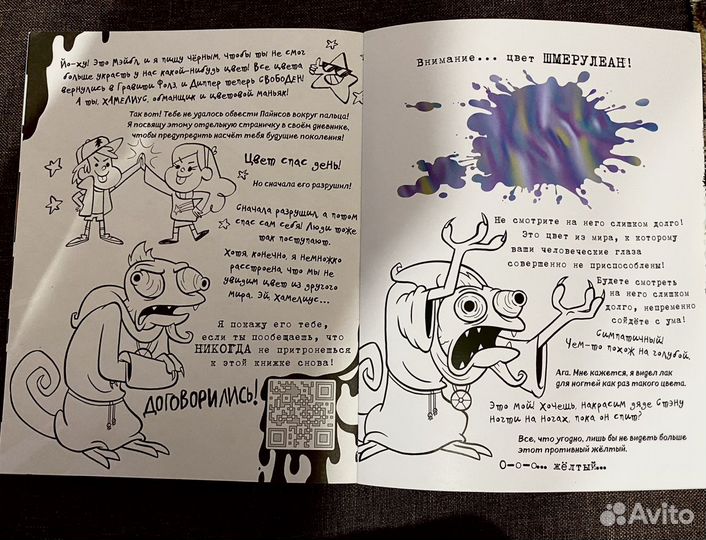 Йо-ху! Это Мэйбл и я пишу чёрным, чтобы ты не смог
больше украсть у нас какой-нибудь цвет! Все цвета
вернулись в Гравити Фолз, и Диппер теперь СВОБОДЕН!
А ты, ХАМЕЛИУС, обманщик и цветовой маньяк!
Так вот! Тебе не удалось обвести Пайнсов вокруг пальца!
Я посвящу этому отдельную страничку в своём дневнике,
чтобы предупредить насчёт тебя будущие поколения!
Цвет спас день!
Но сначала его разрушил!
Сначала разрушил, а потом
спас сам себя! Люди тоже
так поступают.
Хотя, конечно, я немножко
расстроена, что мы не
увидим цвет из другого
мира. Эй, Хамелиус...
Я покажу его тебе,
если ты пообещаешь, что
НИКОГДА не притронешься
к этой книжке снова!
ДОГОВОРИЛИСЬ!
Внимание... цвет ШМЕРУЛЕАН!
Не смотрите на него слишком долго!
Это цвет из мира, к которому
ваши человеческие глаза
совершенно не приспособлены!
Будете смотреть
на него слишком
долго, непременно
сойдёте с ума!
Симпатичный!
Чем-то похож на голубой.
Ага. Мне кажется, я видел лак
для ногтей как раз такого цвета.
Это мой! Хочешь, накрасим дяде Стэну
ногти на ногах, пока он спит?
Все, что угодно, лишь бы не видеть больше
этот противный жёлтый.
О-о-о... жёлтый...
Avito